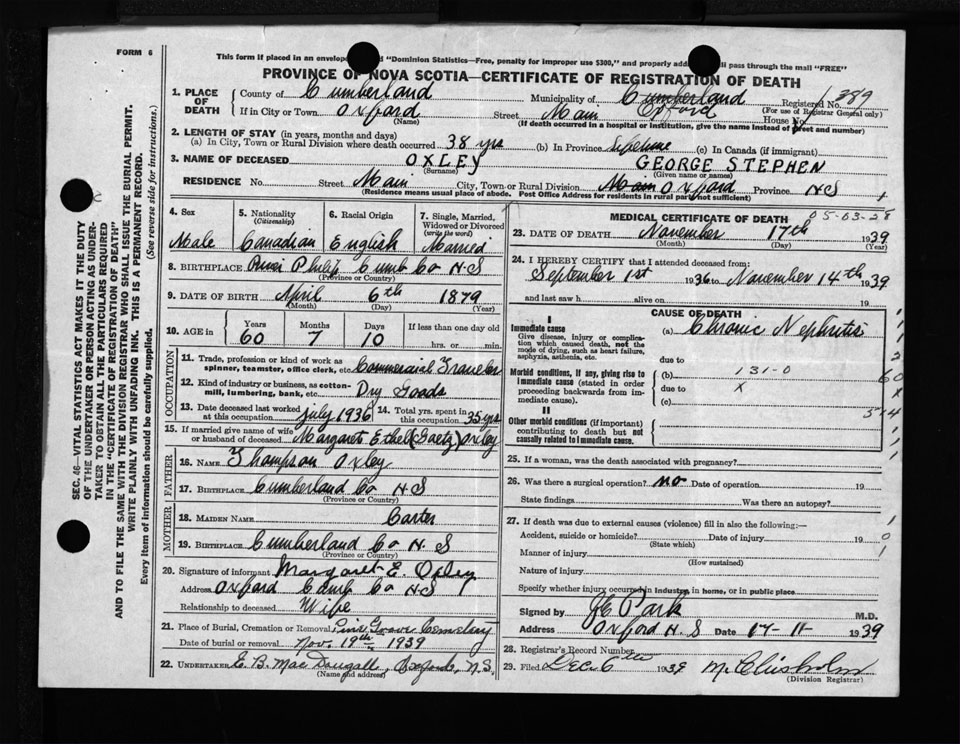 FORM 6
This form if placed in an envelop "Dominion Statistics—Free, penalty for improper use $300," and properly add ll pass through the mail "FREE"
PROVINCE OF NOVA SCOTIA—CERTIFICATE OF REGISTRATION OF DEATH
1. PLACE OF DEATH County of Cumberland Municipality of Cumberland Registered No. 389
(For use of Registrar General only)
If in City or Town Oxford Street Main Oxford House No.
(Name) (If death occurred in a hospital or institution, give the name instead of street and number)
2. LENGTH OF STAY (in years, months and days)
(a) In City, Town or Rural Division where death occurred 38 yrs (b) In Province lifetime (c) In Canada (if immigrant)
3. NAME OF DECEASED OXLEY GEORGE STEPHEN
(Surname) (Given name or names)
RESIDENCE No. Street Main City, Town or Rural Division Main Oxford Province NS
(Residence means usual place of abode. Post Office Address for residents in rural parts not sufficient)
4. Sex Male
5. Nationality (Citizenship) Canadian
6. Racial Origin English
7. Single, Married, Widowed or Divorced (write the word) Married
8. BIRTHPLACE River Philip Cumb Co N.S
(Province or Country)
9. DATE OF BIRTH April 6th 1879
(Month) (Day) (Year)
10. AGE in Years 60 Months 7 Days 10 If less than one day old hrs. or min.
OCCUPATION
11. Trade, profession or kind of work as spinner, teamster, office clerk, etc. Commercial Traveler
12. Kind of industry or business, as cotton-mill, lumbering, bank, etc. Dry Goods
13. Date deceased last worked at this occupation July 1936 14. Total yrs. spent in this occupation 35 yrs
15. If married give name of wife or husband of deceased Margaret Ethel (Gaetz) Oxley
FATHER
16. NAME Thompson Oxley
17. BIRTHPLACE Cumberland Co N.S
MOTHER
18. MAIDEN NAME Carter
19. BIRTHPLACE Cumberland Co N.S
(Province or Country)
20. Signature of informant Margaret E. Oxley
Address Oxford Cumb Co N.S
Relationship to deceased Wife
21. Place of Burial, Cremation or Removal Pine Grove Cemetery
Date of burial or removal Nov. 19th 1939
22. UNDERTAKER E. B. MacDougall, Oxford, N.S.
(Name and address)
MEDICAL CERTIFICATE OF DEATH
05-03-28
23. DATE OF DEATH November 17th 1939
(Month) (Day) (Year)
24. I HEREBY CERTIFY that I attended deceased from:
September 1st 1936 to November 14th 1939
and last saw h alive on 19
CAUSE OF DEATH
I
Immediate cause (a) Chronic Nephritis
Give disease, injury or complication which caused death, not the mode of dying, such as heart failure, asphyxia, asthenia, etc. due to
Morbid conditions, if any, giving rise to immediate cause (stated in order proceeding backwards from immediate cause). (b) 131-0
due to x
(c)
II
Other morbid conditions (if important) contributing to death but not causally related to immediate cause.
25. If a woman, was the death associated with pregnancy?
26. Was there a surgical operation? no Date of operation 19
State findings Was there an autopsy?
27. If death was due to external causes (violence) fill in also the following:—
Accident, suicide or homicide? Date of injury 19
(State which)
Manner of injury
(How sustained)
Nature of injury
Specify whether injury occurred in industry, in home, or in public place
Signed by J C Park M.D.
Address Oxford N.S Date 17-11- 1939
28. Registrar's Record Number
29. Filed Dec. 6th 1939 M. Chisholm
(Division Registrar)
SEC. 46—VITAL STATISTICS ACT MAKES IT THE DUTY
OF THE UNDERTAKER OR PERSON ACTING AS UNDER-
TAKER TO OBTAIN ALL THE PARTICULARS REQUIRED
IN THE "CERTIFICATE OF REGISTRATION OF DEATH"
AND TO FILE THE SAME WITH THE DIVISION REGISTRAR WHO SHALL ISSUE THE BURIAL PERMIT.
WRITE PLAINLY WITH UNFADING INK. THIS IS A PERMANENT RECORD.
Every item of information should be carefully supplied. (See reverse side for instructions.)